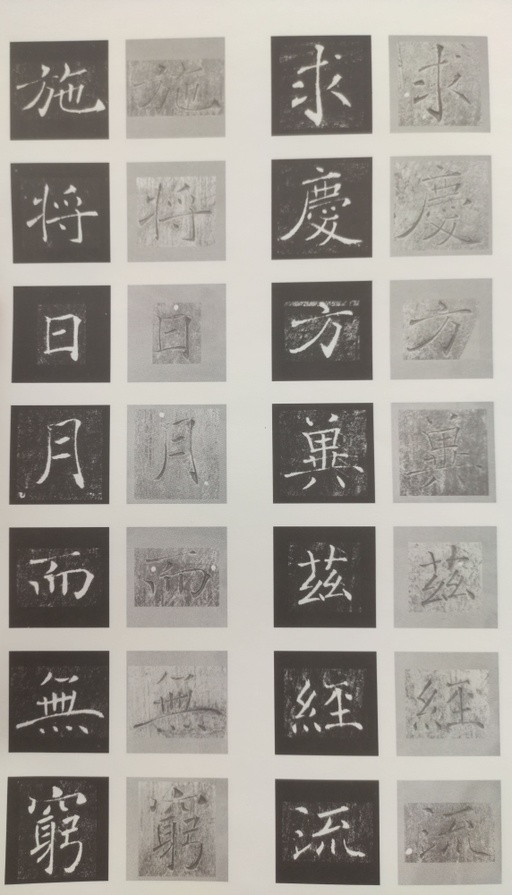 求慶方冀茲經流
求慶方冀茲經流
施将日月而無窮
施将日月而無窮